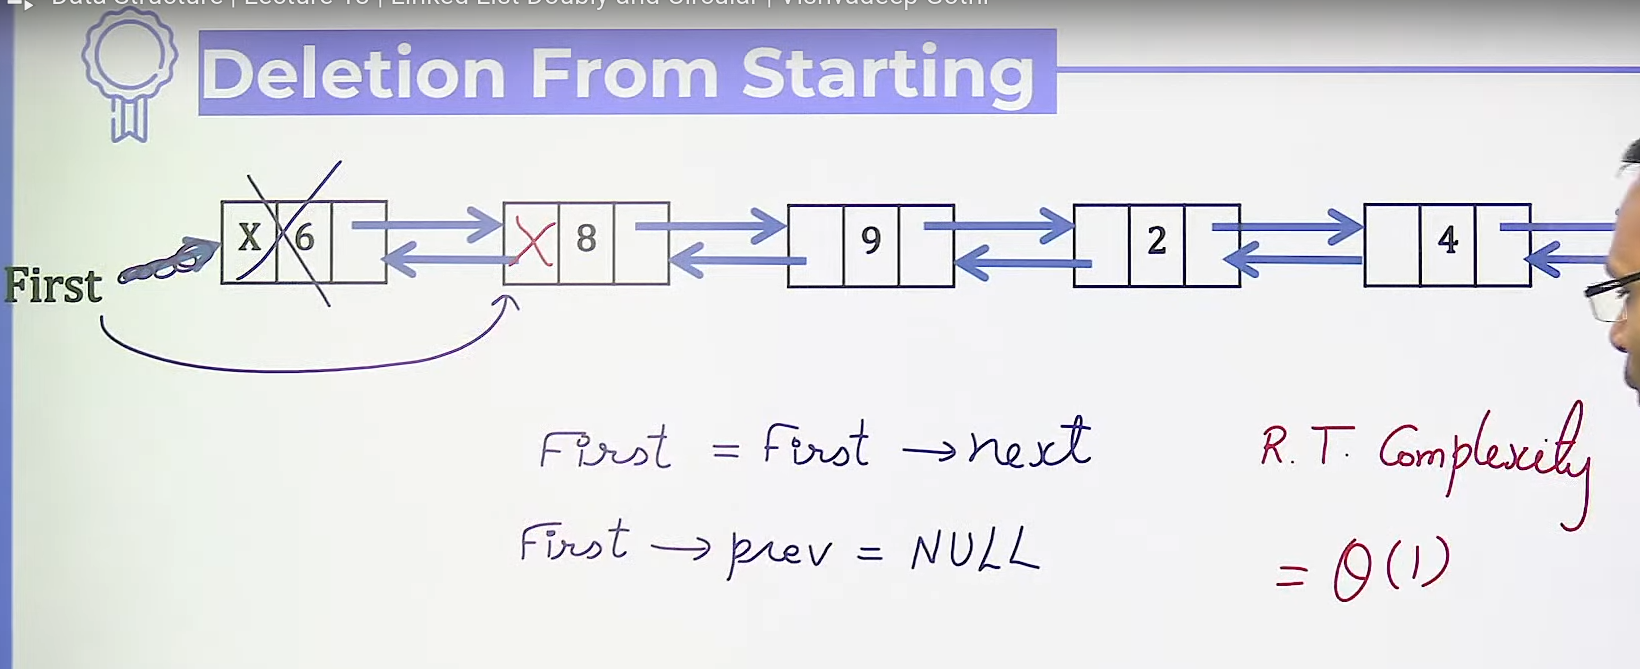 Data Structure | Lecture 10 | Linked List Doubly and Circular | Vishvadeep Gothi
Deletion From Starting
X 6 X 8 9 2 4
First
First = First → next
First → prev = NULL
R. T. Complexity
= θ(1)